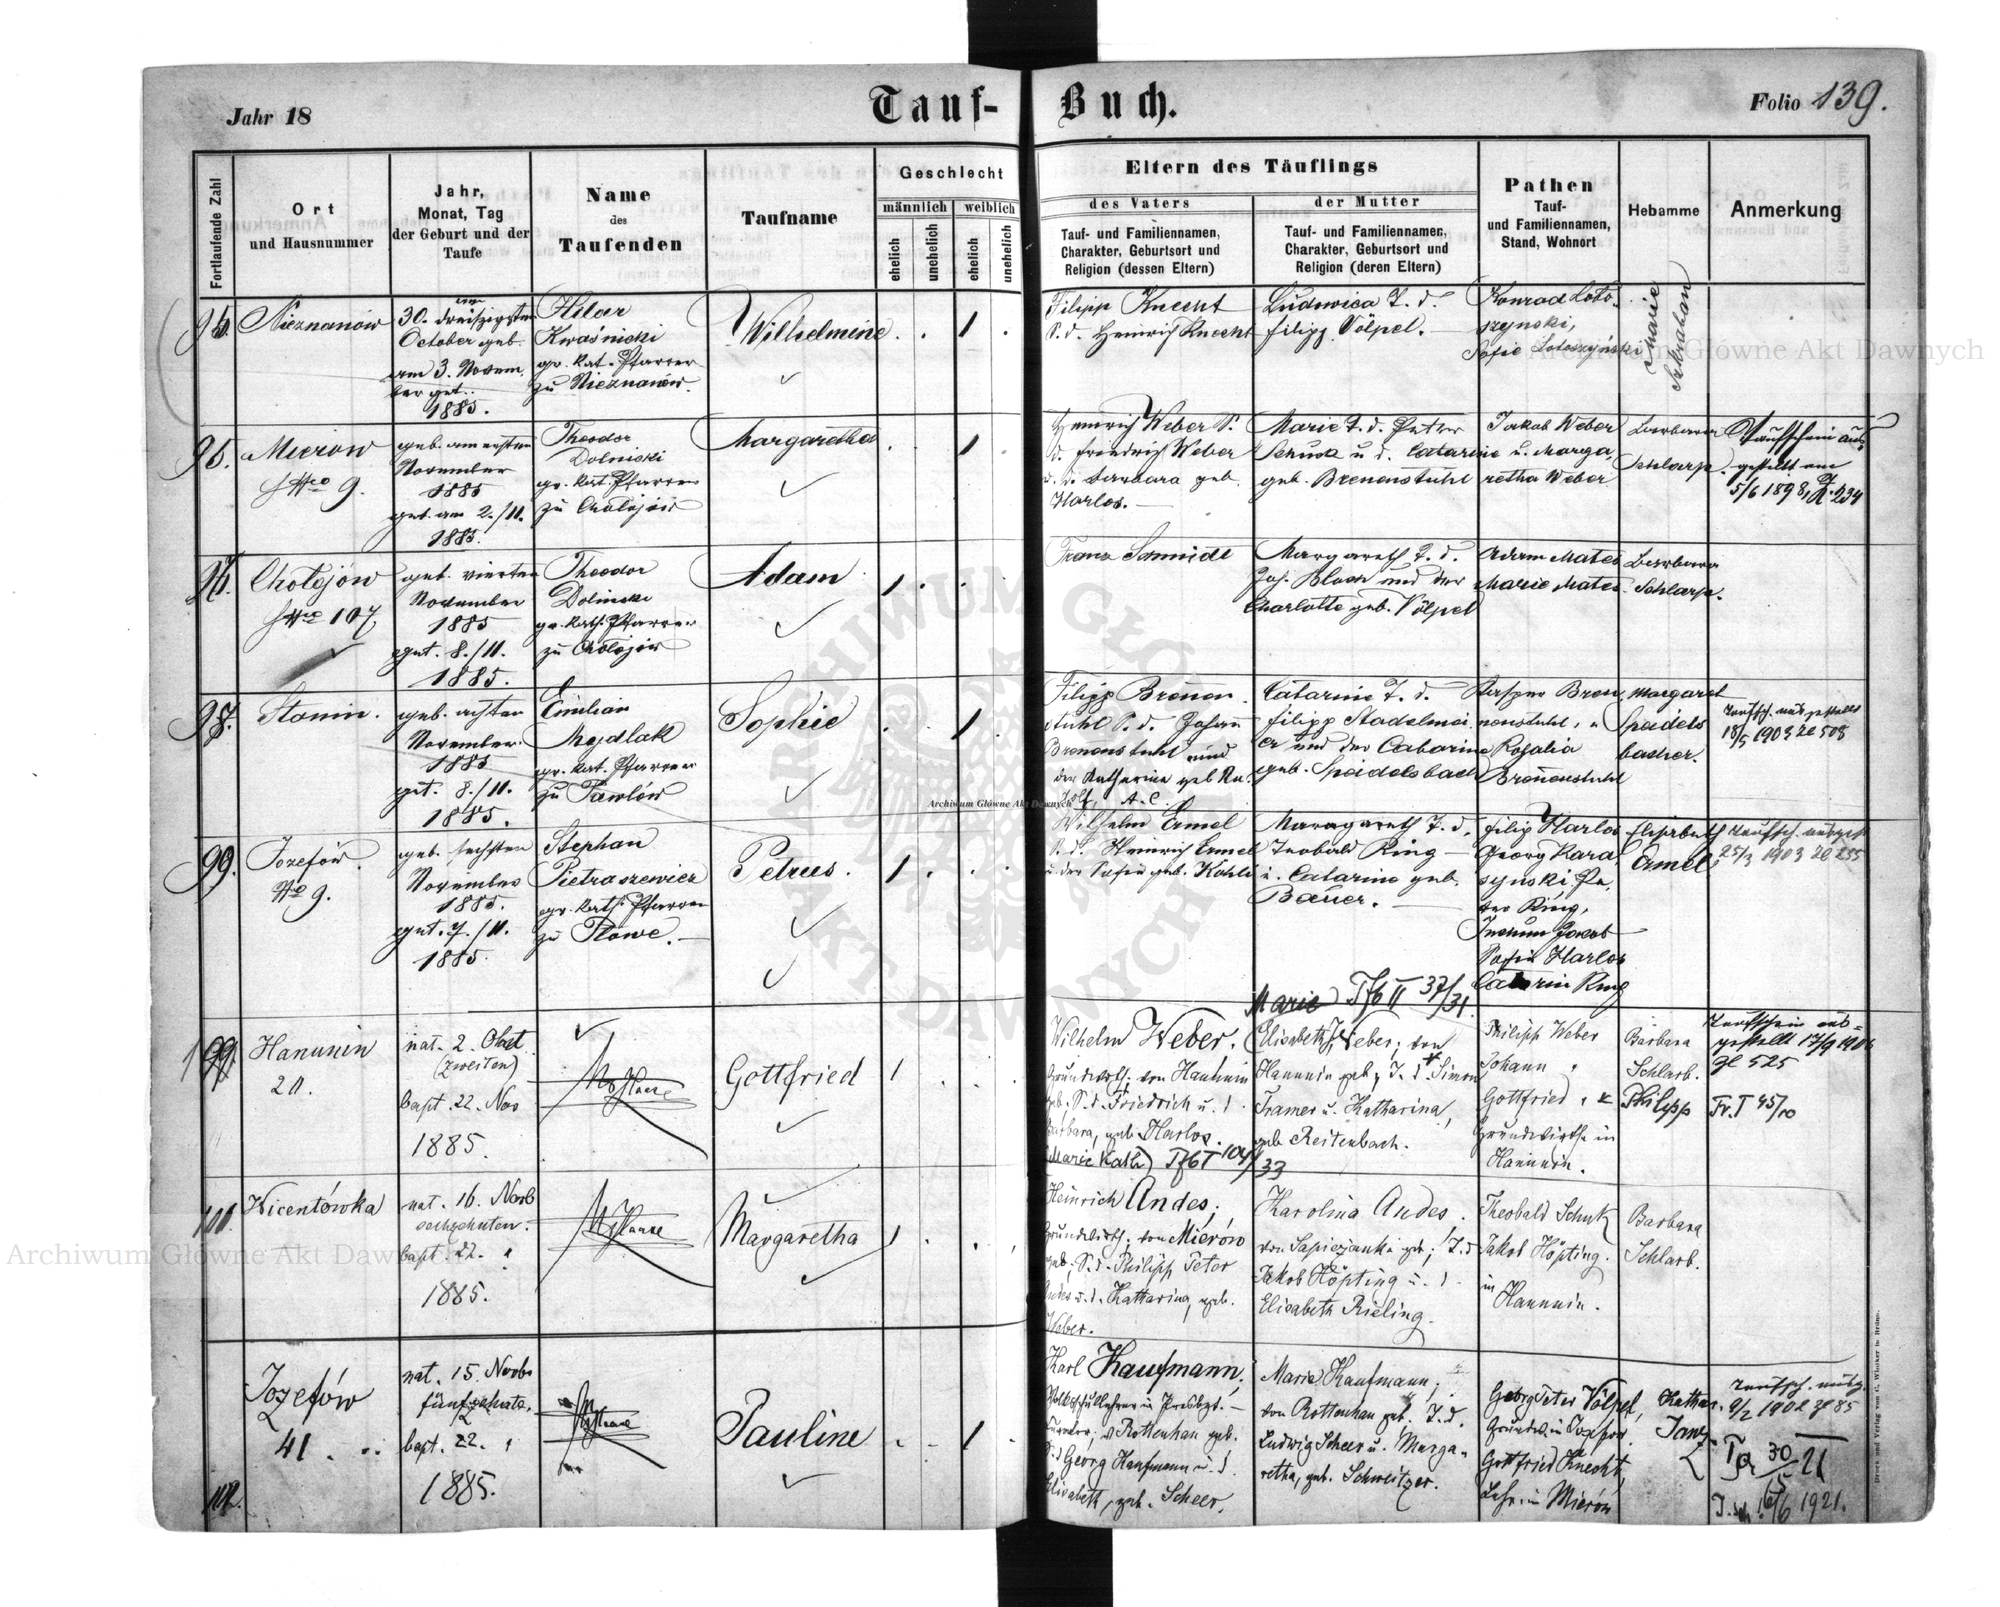 Jahr 18
Tauf-Buch.
Folio 139.
Fortlaufende Zahl
Ort
und Hausnummer
Jahr,
Monat, Tag
der Geburt und der
Taufe
Name
des
Taufenden
Taufname
Geschlecht
männlich
weiblich
ehelich
unehelich
ehelich
unehelich
Eltern des Täuflings
des Vaters
Tauf- und Familiennamen,
Charakter, Geburtsort und
Religion (dessen Eltern)
der Mutter
Tauf- und Familiennamen,
Charakter, Geburtsort und
Religion (deren Eltern)
Pathen
Tauf-
und Familiennamen,
Stand, Wohnort
Hebamme
Anmerkung
Nieznanów
30. dreiszigsten
October geb.
am 3. Novem.
ber get.
1885.
Hilar
Kwaśnicki
gr. kat. Pfarrer
zu Nieznanów.
Wilhelmine
1
Filipp Knecht
S. d. Heinrich Knecht
Ludowica T. d.
Filipp Völpel.
Konrad Loto-
szynski,
Sofie Lotoszyński
Marie
96.
Mierow
No 9.
geb. am ersten
November
1885
get. am 2./11.
1885.
Theodor
Dolinski
gr. kat. Pfarrer
zu Chołojów
Margaretha
1
Heinrich Weber S.
d. Friedrich Weber
u. d. Barbara geb.
Harlos.
Marie T. d. Peter
Schuck u. d. Catarine
geb. Brenenstuhl
Jakob Weber
u. Marga
retha Weber
Barbara
Schlarp.
Taufschein aus-
gestellt am
5/6 1898, N. 234
Chołojów
No 107.
geb. vierten
November
1885
get. 8./11.
1885.
Theodor
Dolinski
gr. kath. Pfarrer
zu Chołojów
Adam
1
Franz Schmidt
Margareth T. d.
Joh. Bloch und der
Charlotte geb. Völpel
Adam Mates
Marie Mates
Barbara
Schlarp.
98.
Stanin.
geb. achten
November
1885
get. 8./11.
1885.
Emilian
Mydlak
gr. kat. Pfarrer
zu Pawłów
Sophie
1
Filipp Brenen
stuhl S. d. Johann
Brenenstuhl und
der Katharina geb. Ru-
dolf, A. C.
Catarine T. d.
Filipp Stadelmei
er und der Catarine
geb. Speidelsbach
Kasper Bren
nenstuhl, u
Rosalia
Brenenstuhl
Margaret
Speidels
bacher.
Taufsch. ausgestellt
18/5 1903 Zl 508
99.
Jozefów.
No 9.
geb. sechsten
November
1885.
get. 7./11.
1885.
Stephan
Pietraszewicz
gr. kath. Pfarrer
zu Płowe.
Petrus.
1
Wilhelm Ermel
S. d. Heinrich Ermel
u. der Sofie geb. Kohli
Maragareth T. d.
Teobald Ring
u. Catarine geb.
Bauer.
Filip Harlos
Georg Kara
synski, Pe-
ter Ring,
Jakob
Sofie Harlos
Catarin Ring
Elisabeth
Ermel
Taufsch. ausgest
25/3 1903 Zl 255
Marie Tfb II 37/31.
Hanunin
20.
nat. 2. Obet
(zweiten)
bapt. 22. Nov
1885.
Gottfried
1
Wilhelm Weber,
Grundwirth, von Hanunin
geb. S. d. Friedrich u. d.
Barbara, geb. Harlos.
(Marie Kath) Tfb I 104/33
Elisabeth Weber, von
Hanunin geb., T. d. Simon
Framer u. Katharina,
geb Reitenbach.
Philipp Weber
Johann "
Gottfried " x
Grundwirthe in
Hanunin.
Barbara
Schlarb.
Philipp
Taufschein aus-
gestellt 17/9 1906
Zl 525
Tr. I 45/10
101.
Wicentówka
nat. 16. Novb
sechzehnten.
bapt. 22. "
1885.
Margaretha
1
Heinrich Andes,
Grundwirth, von Mierów
geb., S. d. Philipp Peter
Andes u. d. Katharina, geb.
Weber.
Karolina Andes,
von Sapiezanka geb., T. d
Jakob Höpting u. d.
Elisabeth Rieling.
Theobald Schuk
Jakob Höpting.
in
Hanunin.
Barbara
Schlarb.
102.
Jozefów
41.
nat. 15. Novb
fünfzehnte,
bapt. 22. "
1885.
Pauline
1
Karl Kaufmann,
Volksschullehrer in
v. Rottenhan geb.
S. d. Georg Kaufmann u. d.
Elisabeth, geb. Scheer.
Marie Kaufmann,
von Rottenhan geb. T. d.
Ludwig Scheer u. Marga-
retha, geb. Schweitzer.
Georg Peter Völpel,
Grundw. in Jozefow.
Gottfried Knecht,
Lehr. in Mierów
Kathar.
Janz
Taufsch. ausg.
9/2 1902 Zl 85
Tr 30/21
16/6 1921.
Druck und Verlag von C. Winiker in Brünn.
Archiwum Główne Akt Dawnych
Archiwum Główne Akt Dawnych
Archiwum Główne Akt Dawnych
ARCHIWUM GŁÓWNE AKT DAWNYCH